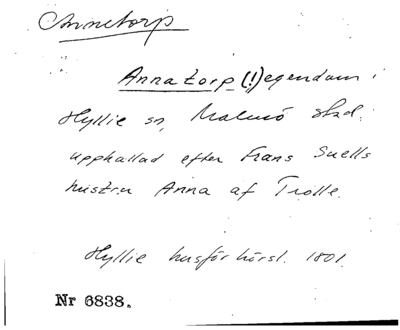 Annetorp
Annatorp (!) egendom i
Hyllie sn, Malmö stad.
uppkallad efter Frans Suells
hustru Anna af Trolle.
Hyllie husförhörsl. 1801.
Nr 6838.